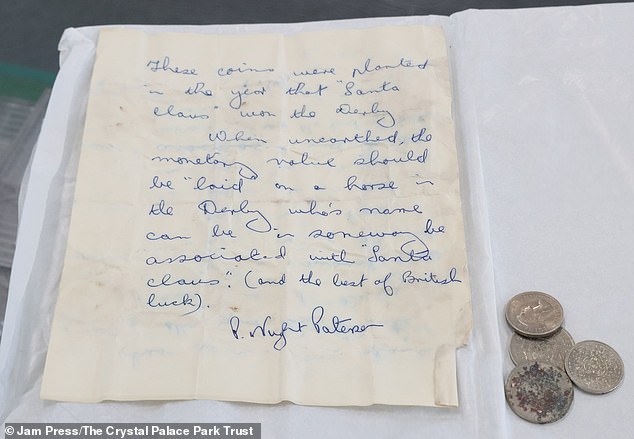 These coins were planted
in the year that "Santa
Claus" won the Derby
When unearthed, the
monetary value should
be "laid" on a horse in
the Derby who's name
can be in someway be
associated with "Santa
Claus". (and the best of British
luck).
P. Nught Paterson
© Jam Press/The Crystal Palace Park Trust